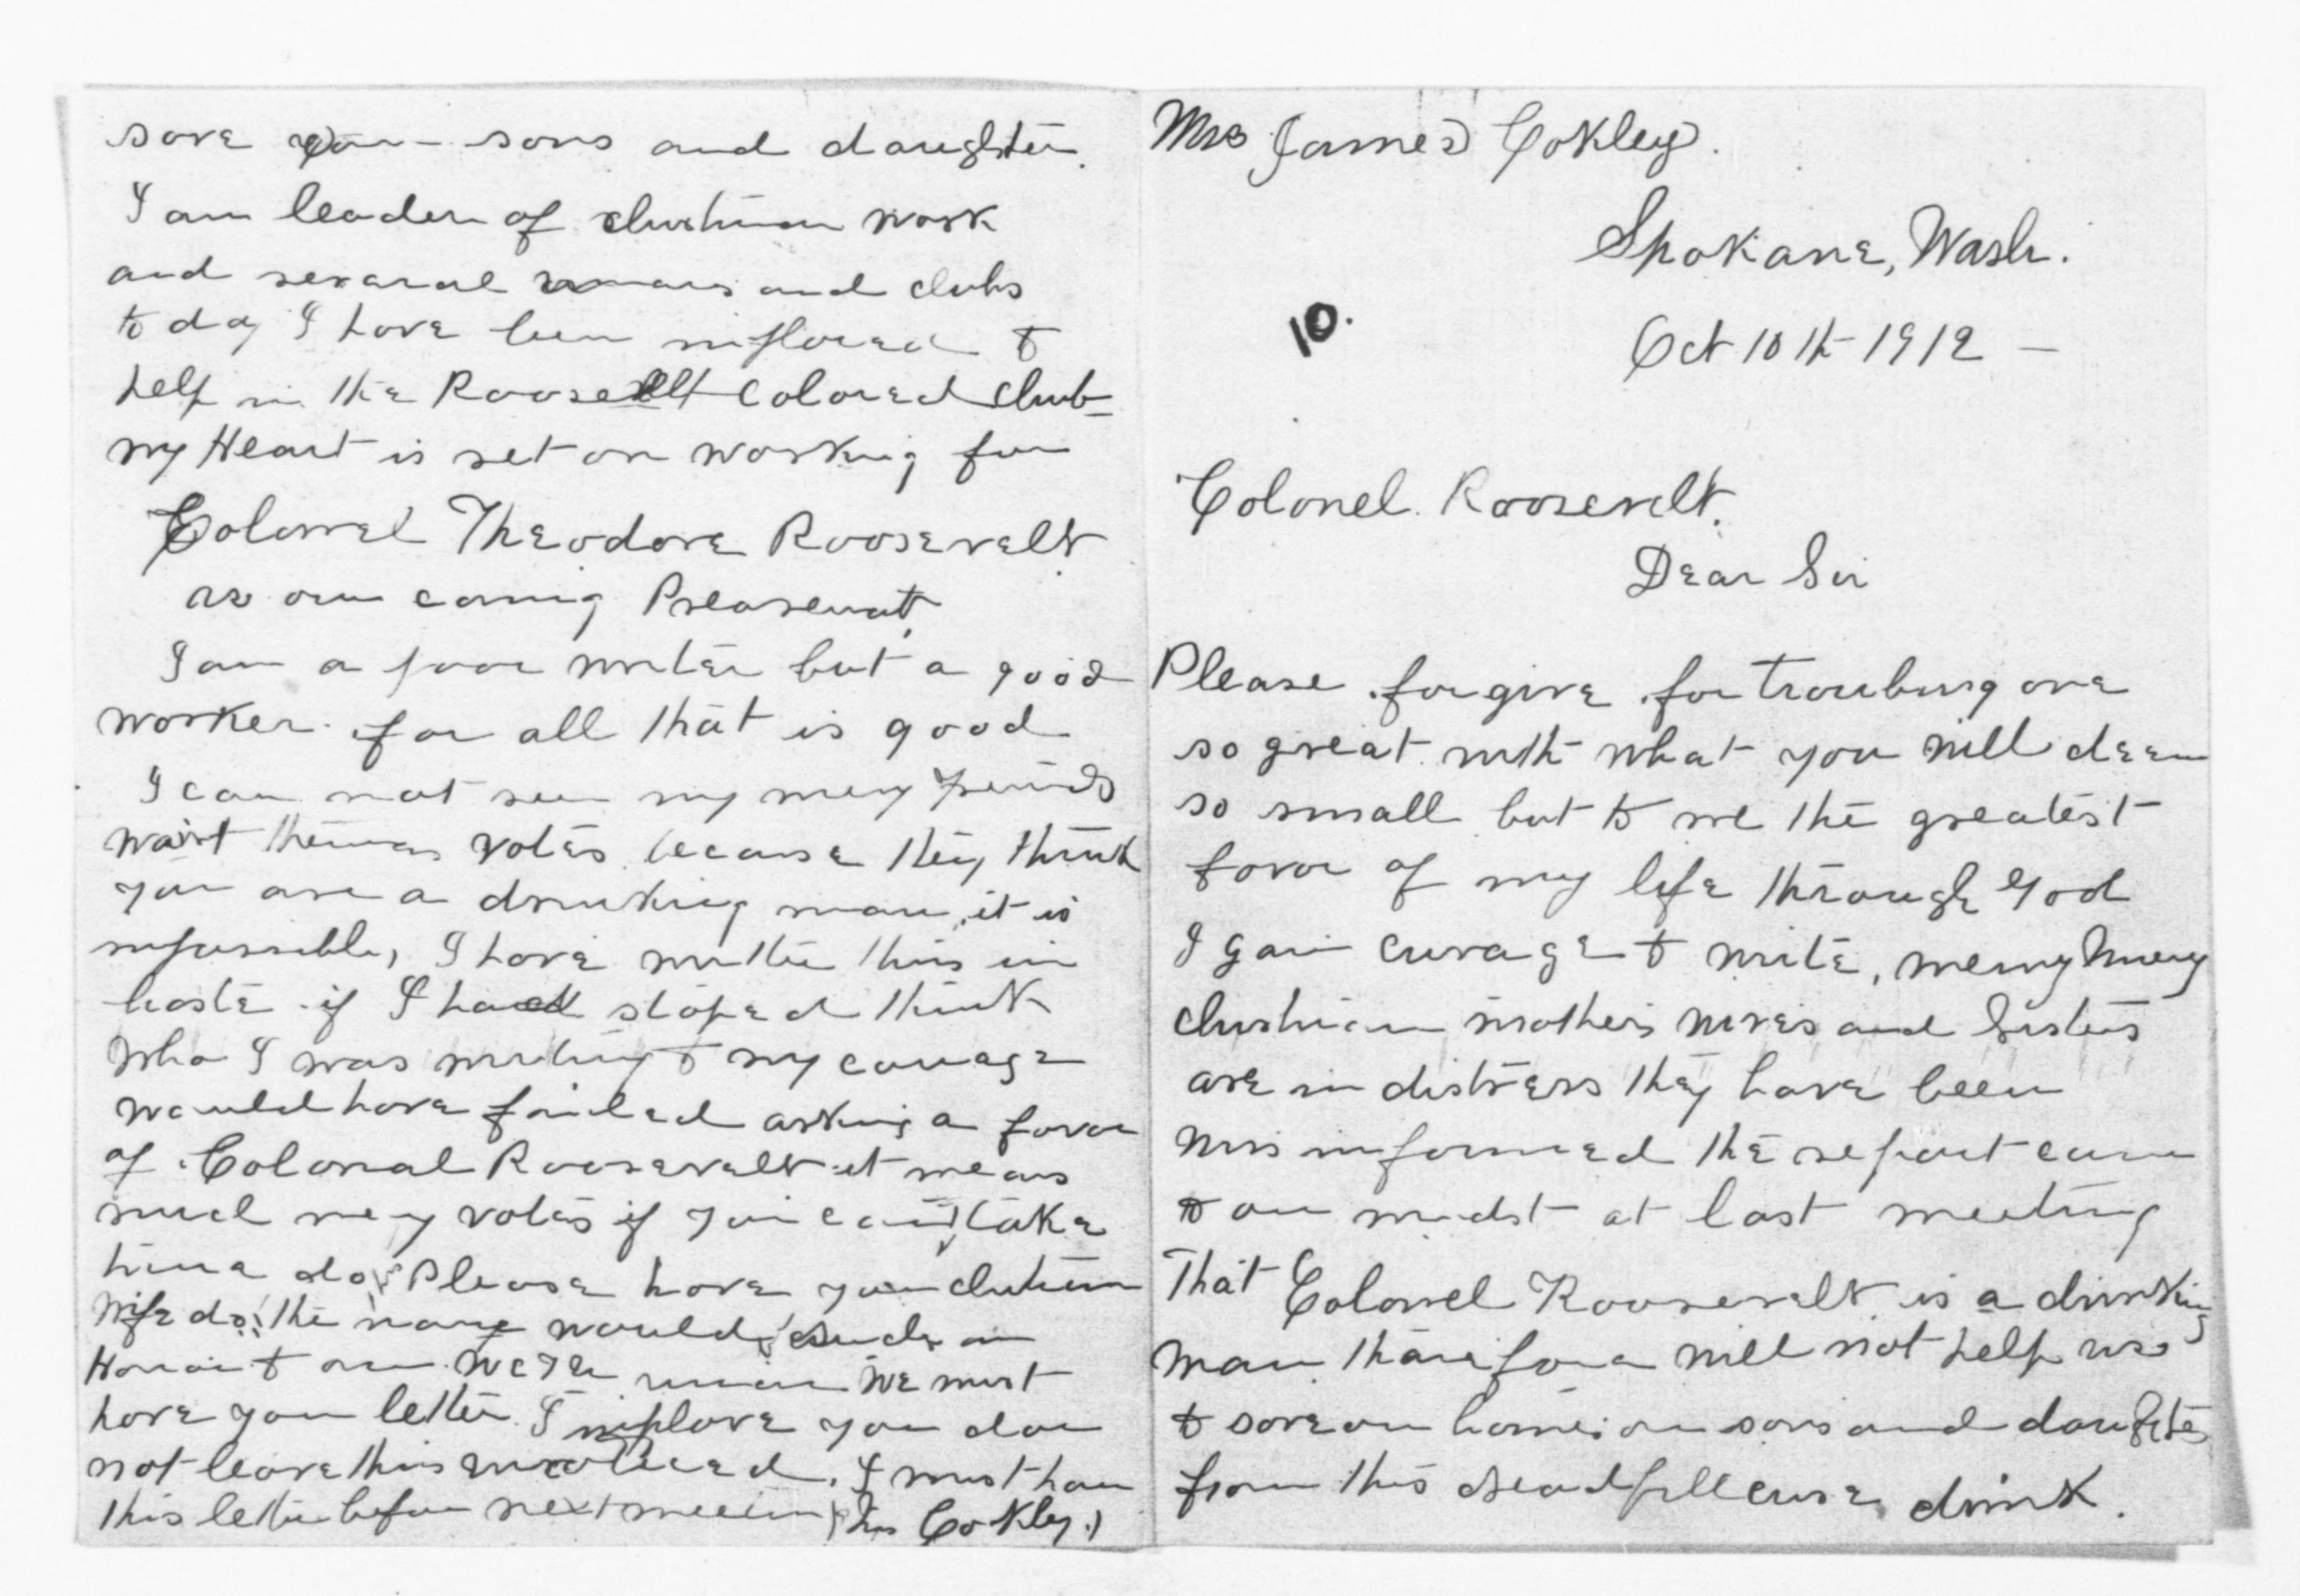 Mrs James Cokley.
Spokane, Wash.
10.
Oct 10th 1912 —
Colonel. Roosevelt.
Dear Sir
Please forgive for troubing one
so great with what you will deem
so small but to me the greatest
favor of my life through God
I gain curage to write, meny meny
christian mothers wives and Sisters
are in distress they have been
mis informed the report came
to our midst at last meeting
That Colonel Roosevelt is a drinking
man tharefore will not help us
to save our homes our sons and daughters
from this dreadfull curse drink.
save our sons and daughter.
I am leader of christian work
and several and clubs
to day I have been to
help in the Roosevelt Colored Club
my Heart is set on working for
Colonel Theodore Roosevelt
as our coming
I am a poor writer but a good
worker for all that is good
I can not my meny friends
votes because they think
you are a drinking man, it is
impossible, I have this in
haste if I had stoped think
who I was writing to my courage
would have failed asking a favor
of Colonal Roosevelt it means
meny votes if you can take
time do, Please have your
wife do, the would
we must
have your letter. I implore you
not leave this I must have
this letter before next Cokley.)